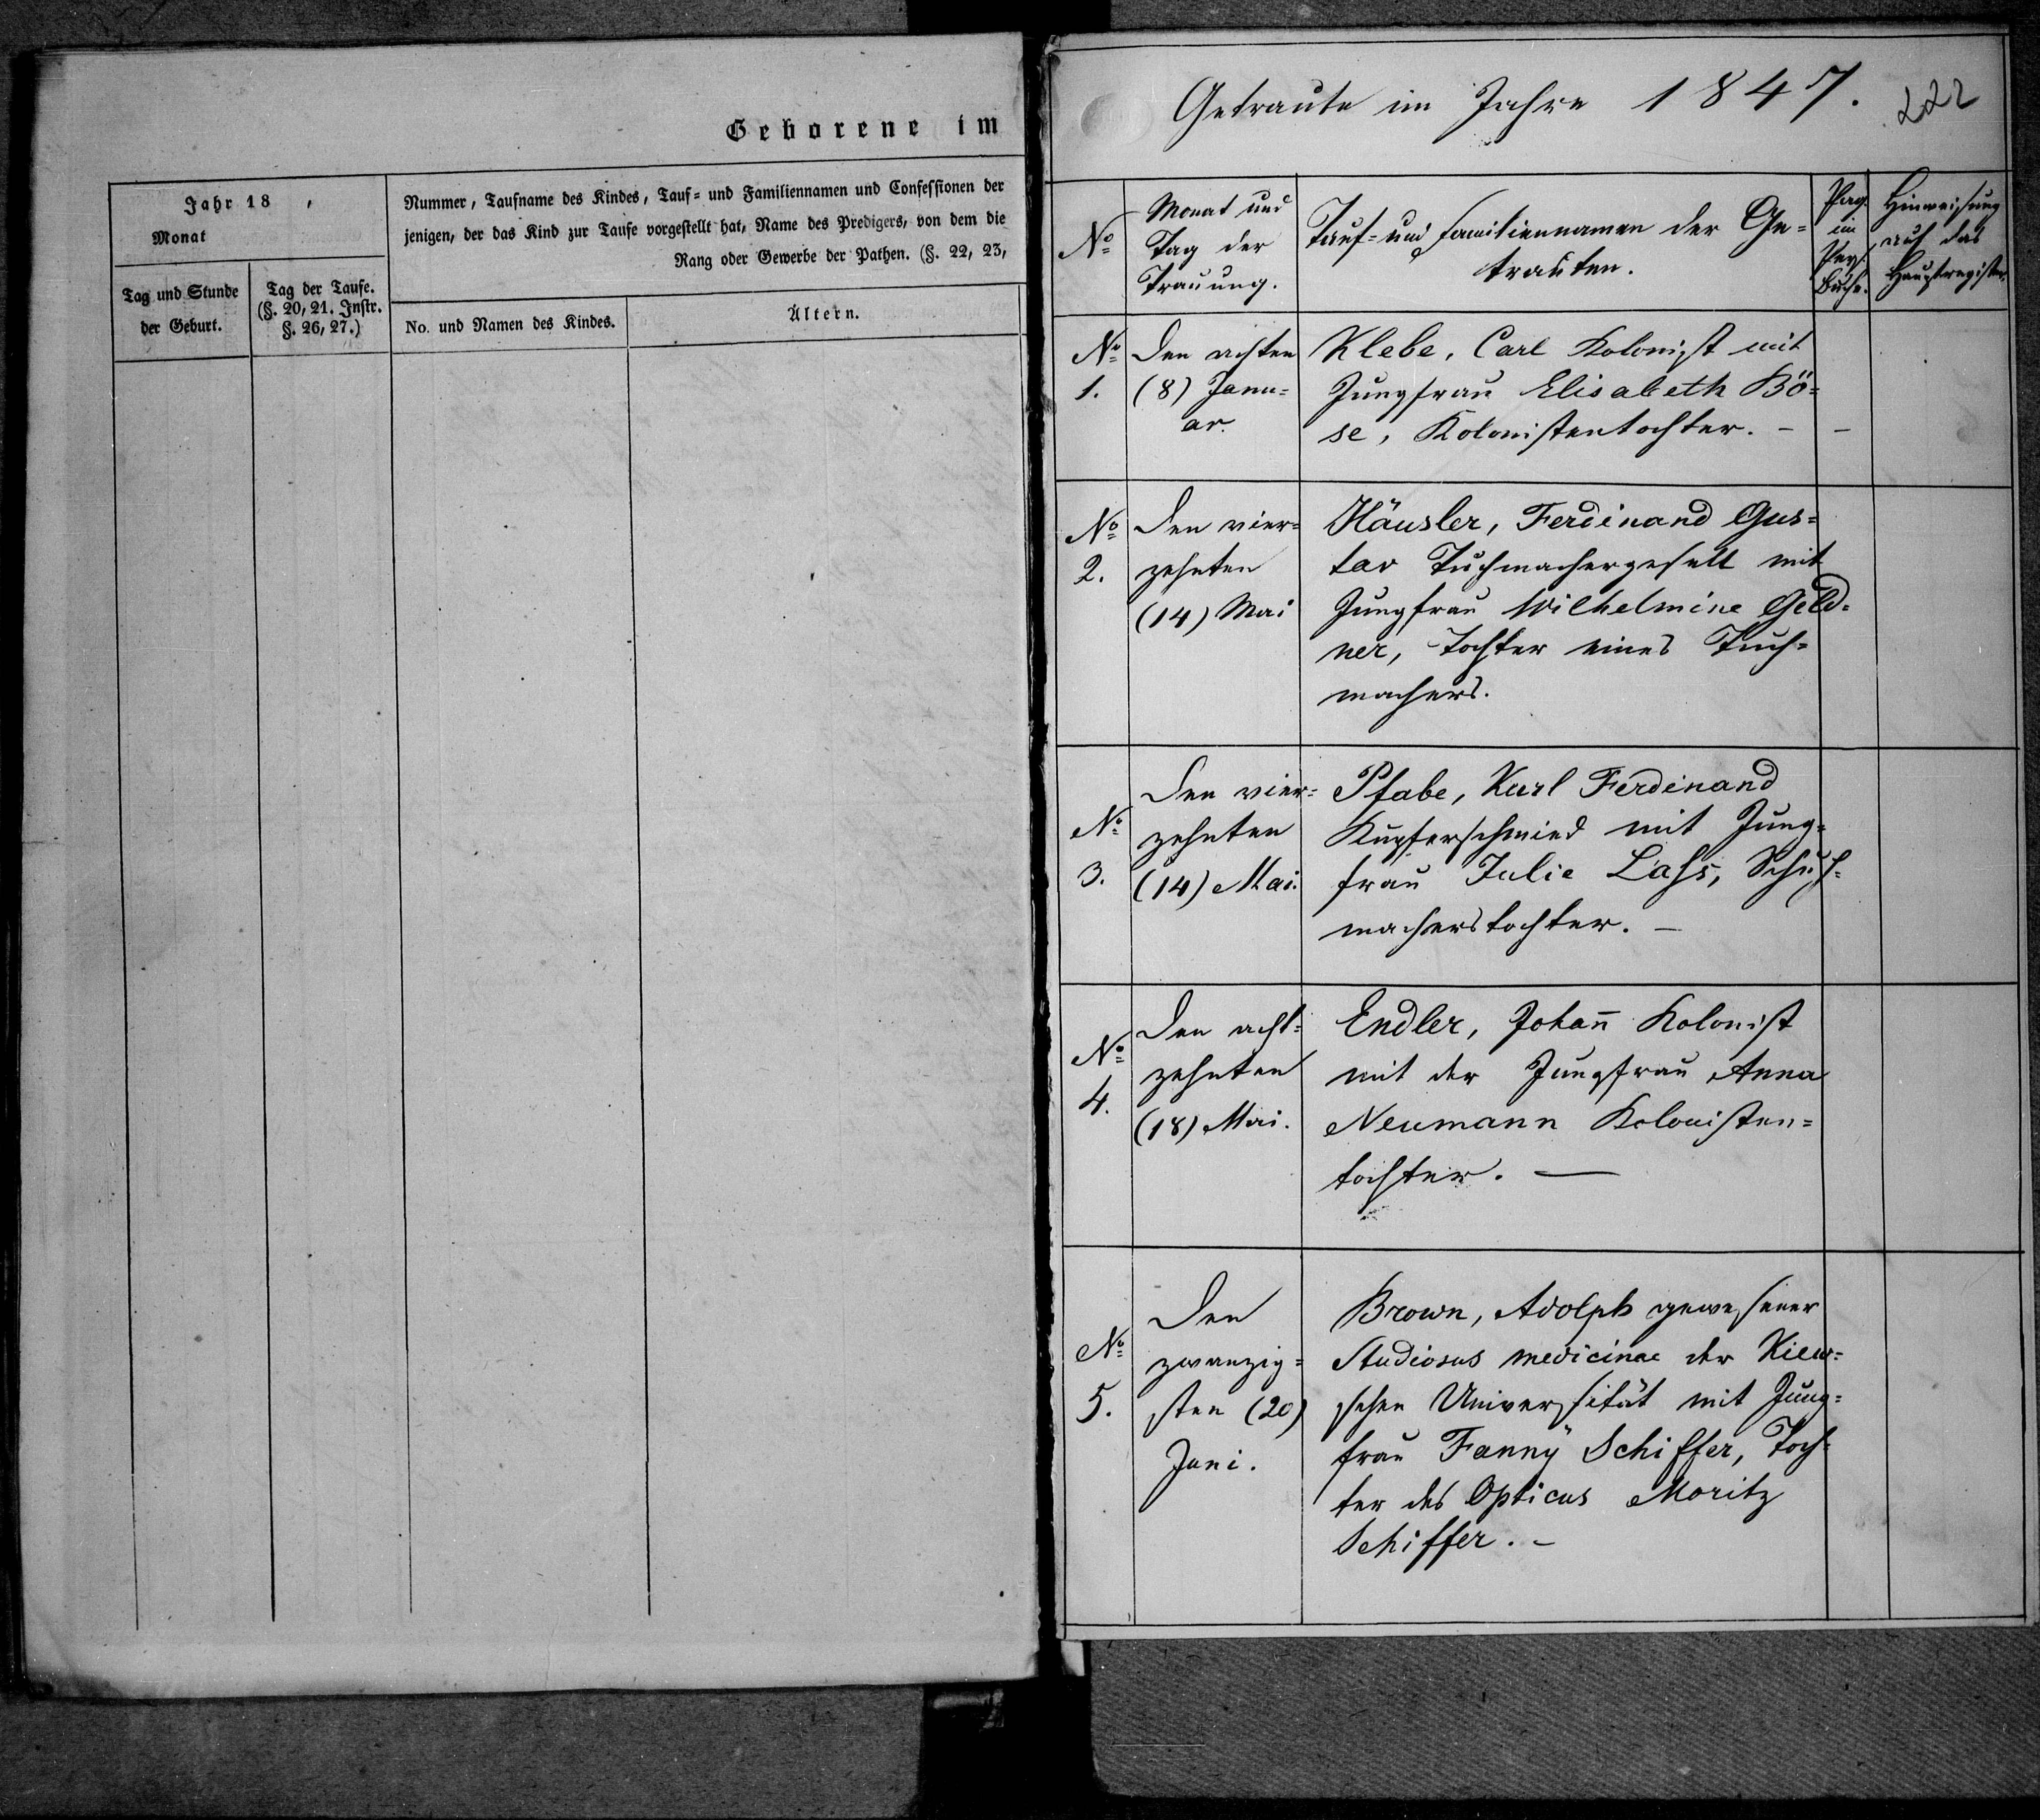 Geborene im
Jahr 18 ,
Monat
Nummer, Taufname des Kindes, Tauf- und Familiennamen und Confessionen der
jenigen, der das Kind zur Taufe vorgestellt hat, Name des Predigers, von dem die
Rang oder Gewerbe der Pathen. (§. 22, 23,
Tag und Stunde
der Geburt.
Tag der Taufe.
(§. 20, 21. Instr.
§. 26, 27.)
No. und Namen des Kindes.
Ältern.
Getraute im Jahre 1847.
222
No
Monat und
Tag der
Trauung.
Tauf- und Familiennamen der Ge-
trauten.
Pag.
im
Pers.
Buche.
Hinweisung
auf das
Hauptregister.
No
1.
Den achten
(8) Janu-
ar.
Klebe, Carl Kolonist mit
Jungfrau Elisabeth Bö-
se, Kolonistentochter. – –
No
2.
Den vier-
zehnten
(14) Mai
Häusler, Ferdinand Gus-
tav Tuchmachergesell mit
Jungfrau Wilhelmine Geld-
ner, Tochter eines Tuch-
machers.
No
3.
Den vier-
zehnten
(14) Mai.
Pfabe, Karl Ferdinand
Kupferschmied mit Jung-
frau Julie Lass, Schuh-
macherstochter. –
No
4.
Den acht-
zehnten
(18) Mai.
Endler, Johan̄ Kolonist
mit der Jungfrau Anna
Neumann Kolonisten-
tochter. —
No
5.
Den
zwanzig-
sten (20)
Juni.
Brown, Adolph gewesener
Studiosus medicinae der Kiew-
schen Universität mit Jung-
frau Fanny Schiffer, Toch-
ter des Opticus Moritz
Schiffer. –